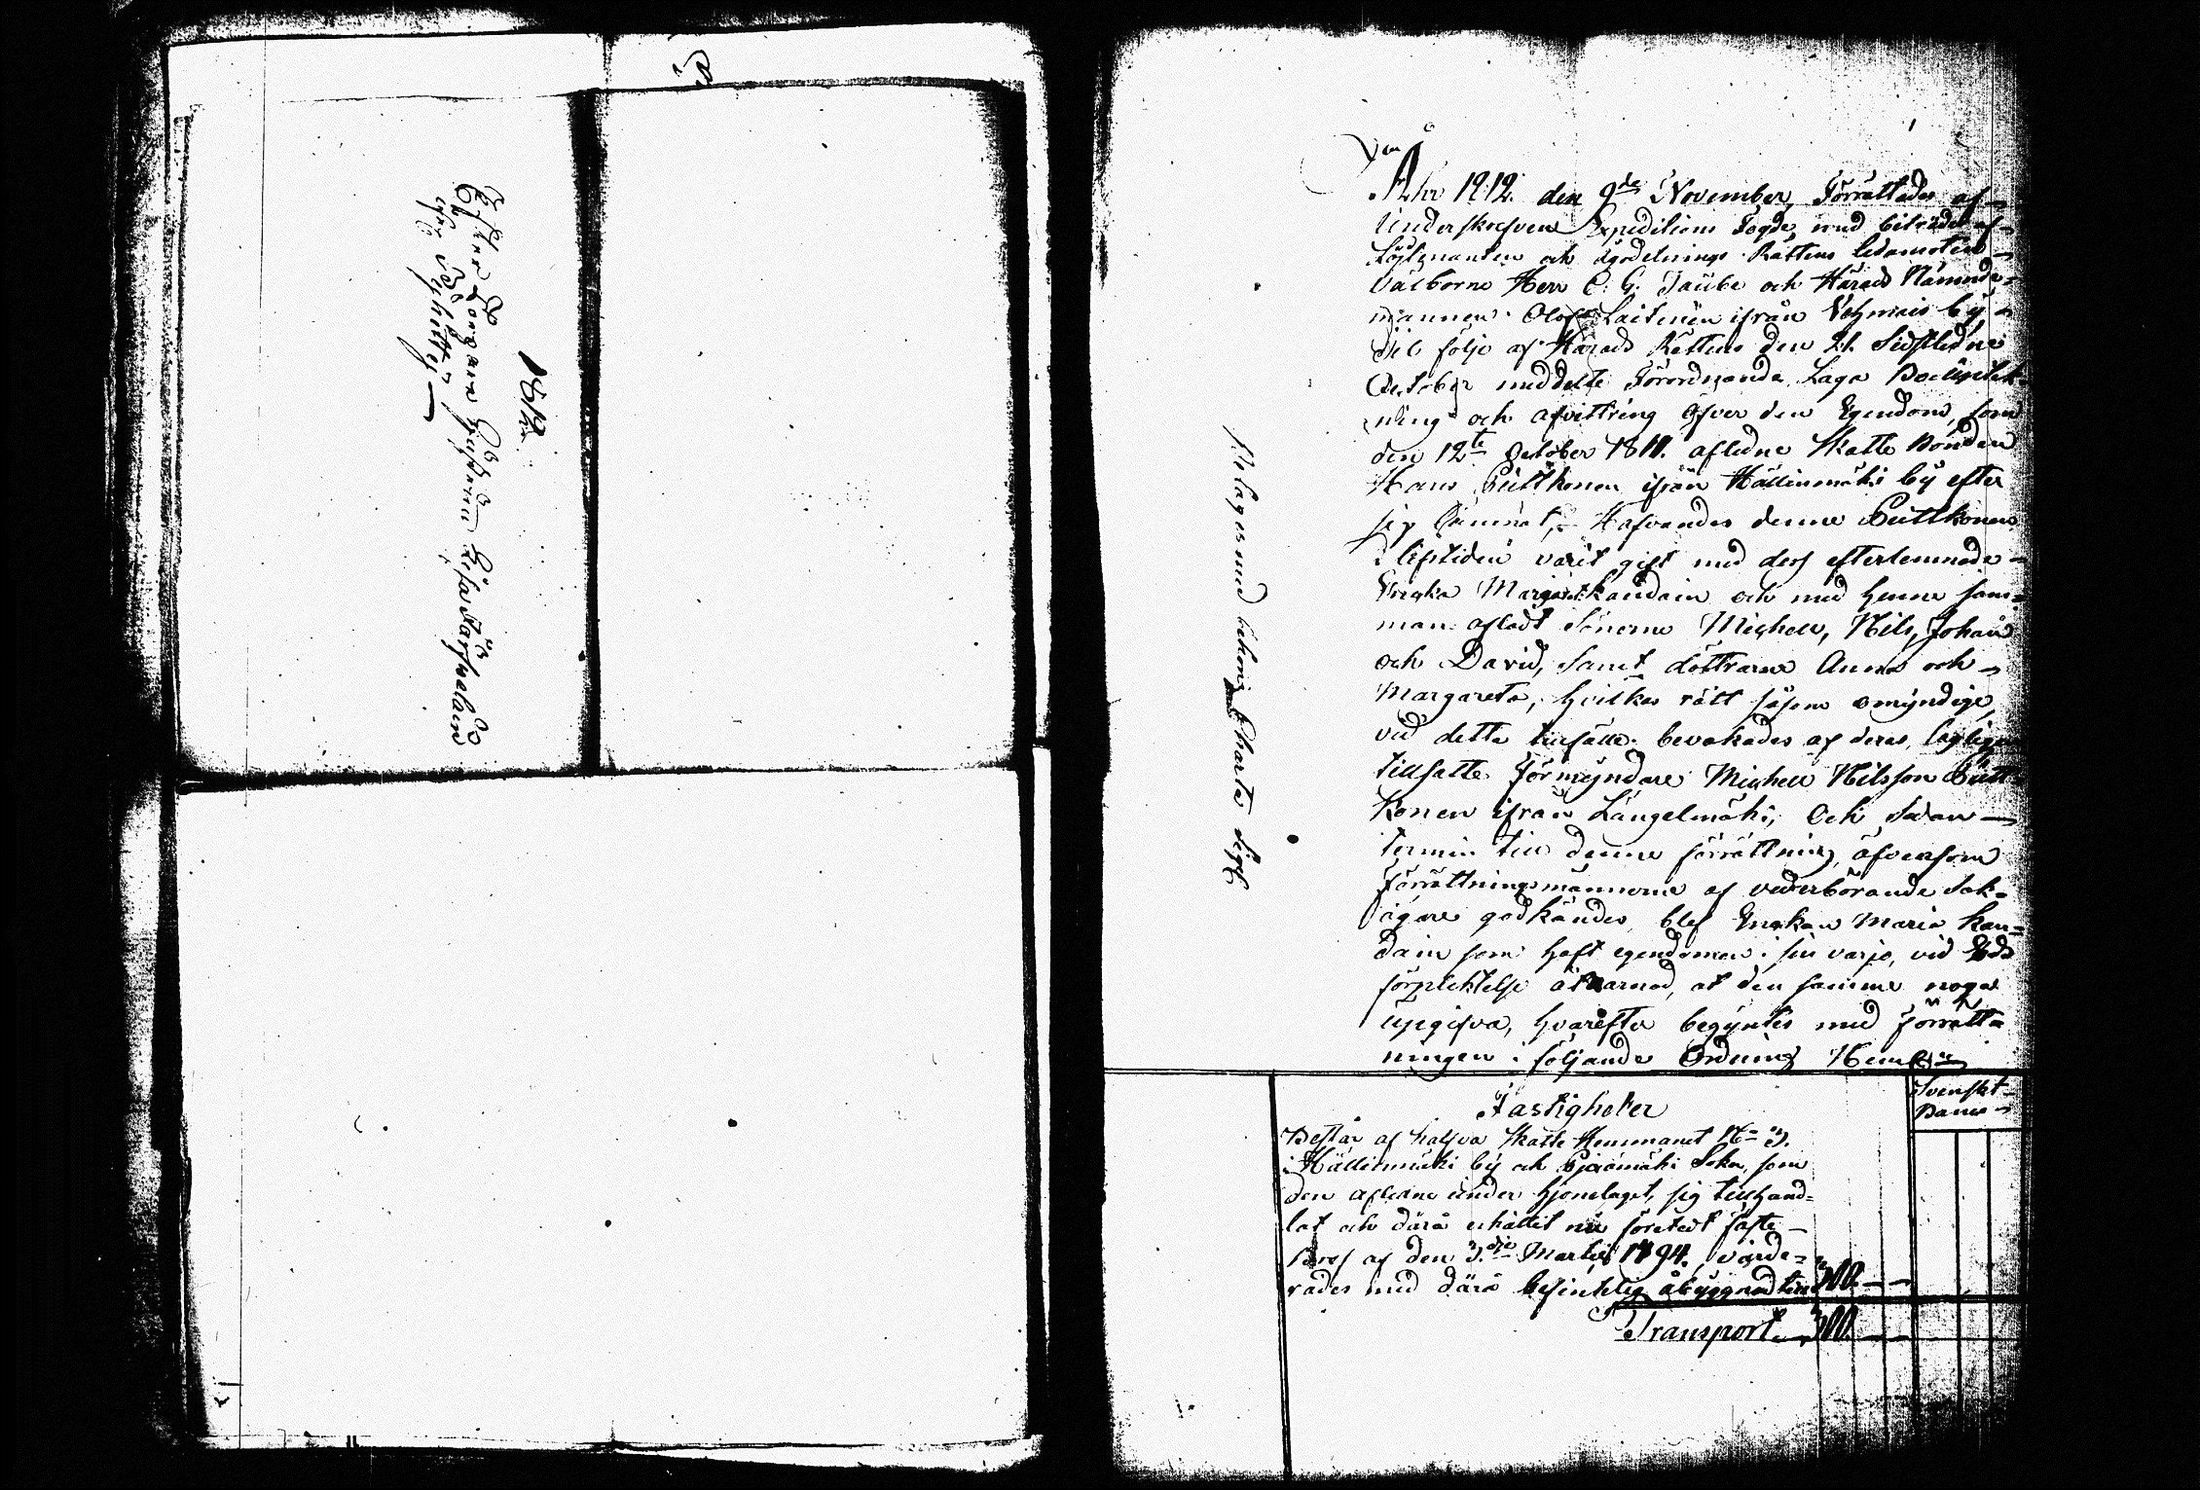 1812.
Efter Torparn Hustrun Lisa Tarfvalain
ifrån Pyhitty
Belägges med behörig Charta Sigil
År 1812. den 9de November, Förrättades af
Underskrefven Expeditions Fogde, med biträde af
Löjtenanten och Ägodelnings Rättens Ledamoten
Välborne Herr C. G. Taube och Härads Nämnde-
mannen Olof Laitinen ifrån Vehmais by
til följe af Härads Rättens den 21. Sidstledne
October meddelte Förordnande, Laga Bouptek-
ning och afvittring öfver den Egendom, som
den 12te October 1811. afledne Skatte Bonden
Hans Puttkonen ifrån Hällinmäki by efter
sig lämnat, Hafvandes denne Puttkonen
i lifstiden varit gift med dess efterlemnade
Enka Margaret Kaudain och med henne sam-
man afladt Sönerne Michell, Nils, Johan
och David, samt döttrarne Anna och
Margareta, hvilkas rätt såsom omyndige,
vid dette tillfälle bevakades af deras lagligen
tillsatte Förmyndare Michell Nilsson Putt-
konen ifrån Längelmäki, Och, Sedan
termin till denne förrättning, äfvensom
förrättningsmännerne af vederbörande Sak-
ägare godkändes, blef Enkan Maria Kau-
dain som haft egendomen i sin varjo, vid Eds
förplicktelse åtvarnad, at den samme noga
uppgifva, hvarefter begyntes med förrätt-
ningen i följande Ordning
Svenskt
Banco
Fastigheter
Består af halfva Skatte Hemmanet No 3.
i Hällinmäki by och Pjexämäki Sokn, som
den aflidne under hjonelaget, sig tillhand-
lat och därå erhållit nu företedt faste-
Bref af den 3die Martii 1794. värde-
rades med därå befintelig åbyggnad till 300.
Transport 300.